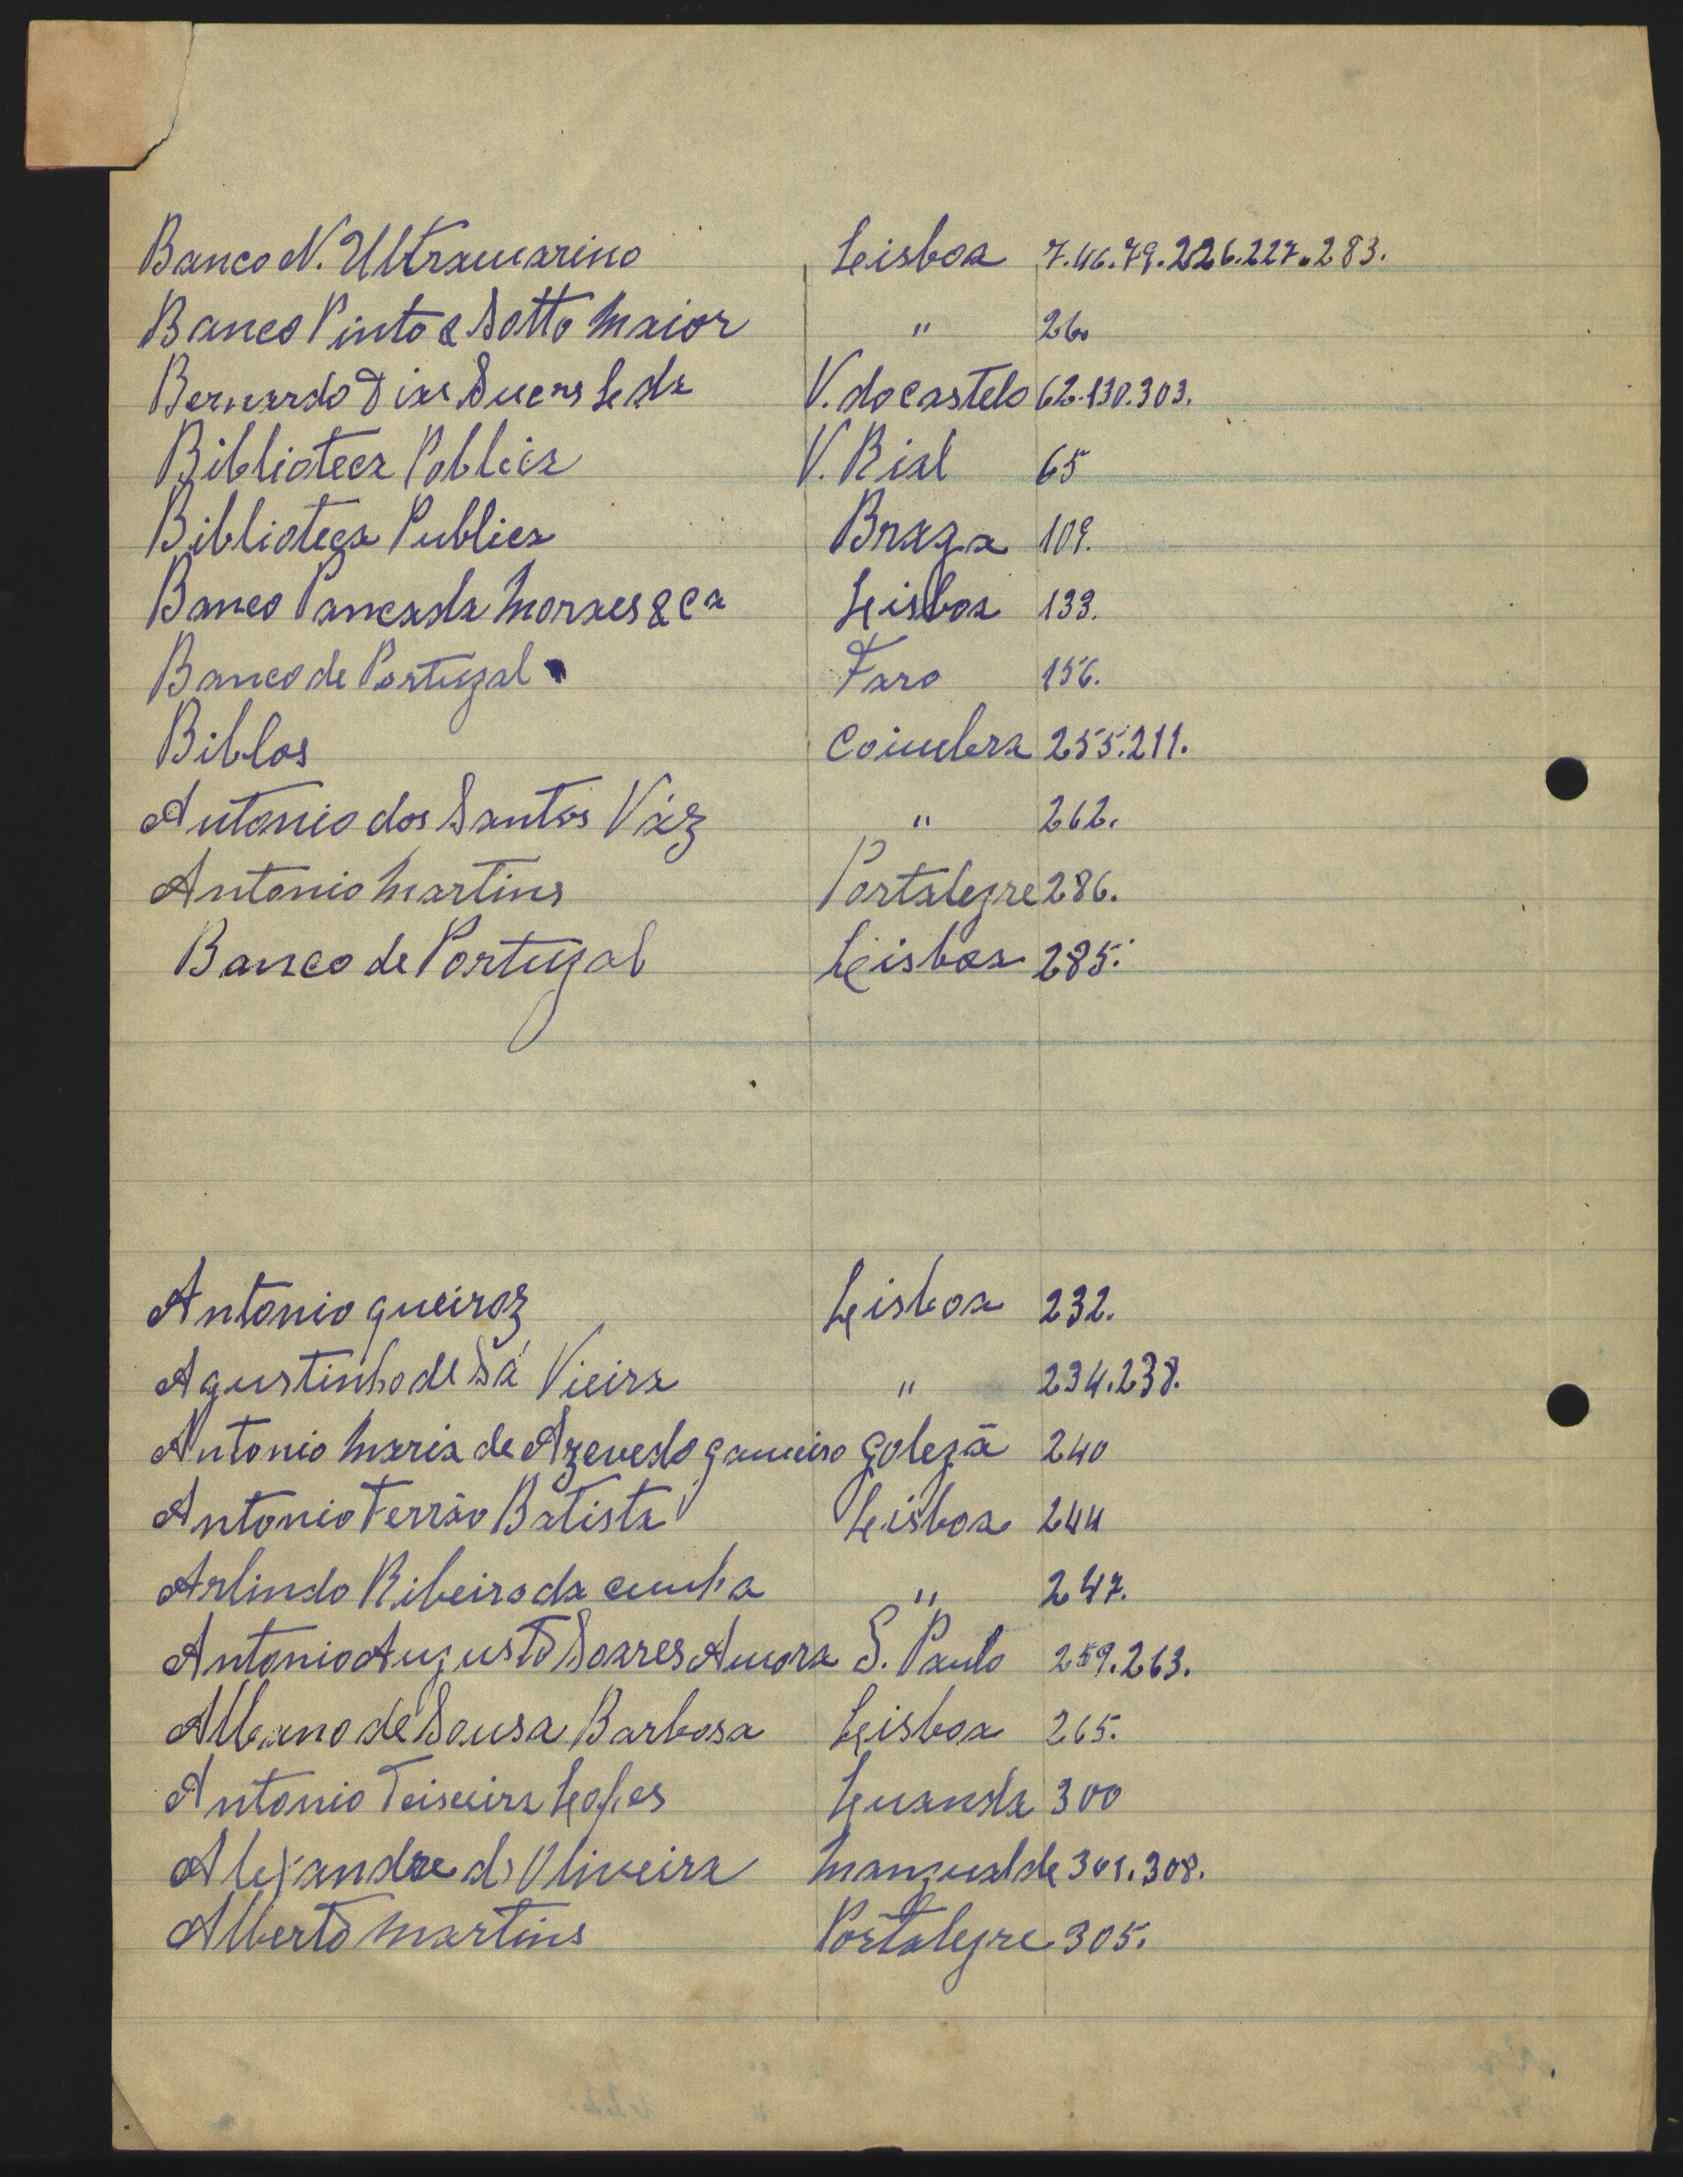 Banco N. Ultramarino Lisboa 7.46.79.226.227.283.
Banco Pinto & Sotto Maior " 26.
Bernardo Dias Sucrs Lda V. do Castelo 62.130.303.
Biblioteca Poblica V. Rial 65
Biblioteca Publica Braga 109.
Banco Pancada Moraes & Ca Lisboa 133.
Banco de Portugal Faro 156.
Biblos Coimbra 255.211.
Antonio dos Santos Váz " 262.
Antonio Martins Portalegre 286.
Banco de Portugal Lisboa 285.
Antonio Queiroz Lisboa 232.
Agustinho de Sá Vieira " 234.238.
Antonio Maria de Azevedo Gameiro Golegã 240
Antonio Ferrão Batista Lisboa 244
Arlindo Ribeiro da Cunha " 247.
Antonio Augusto Soares Amora S. Paulo 259.263.
Albano de Sousa Barbosa Lisboa 265.
Antonio Teixeira Lopes Luanda 300
Alexandre d' Oliveira Mangualde 301.308.
Alberto Martins Portalegre 305.